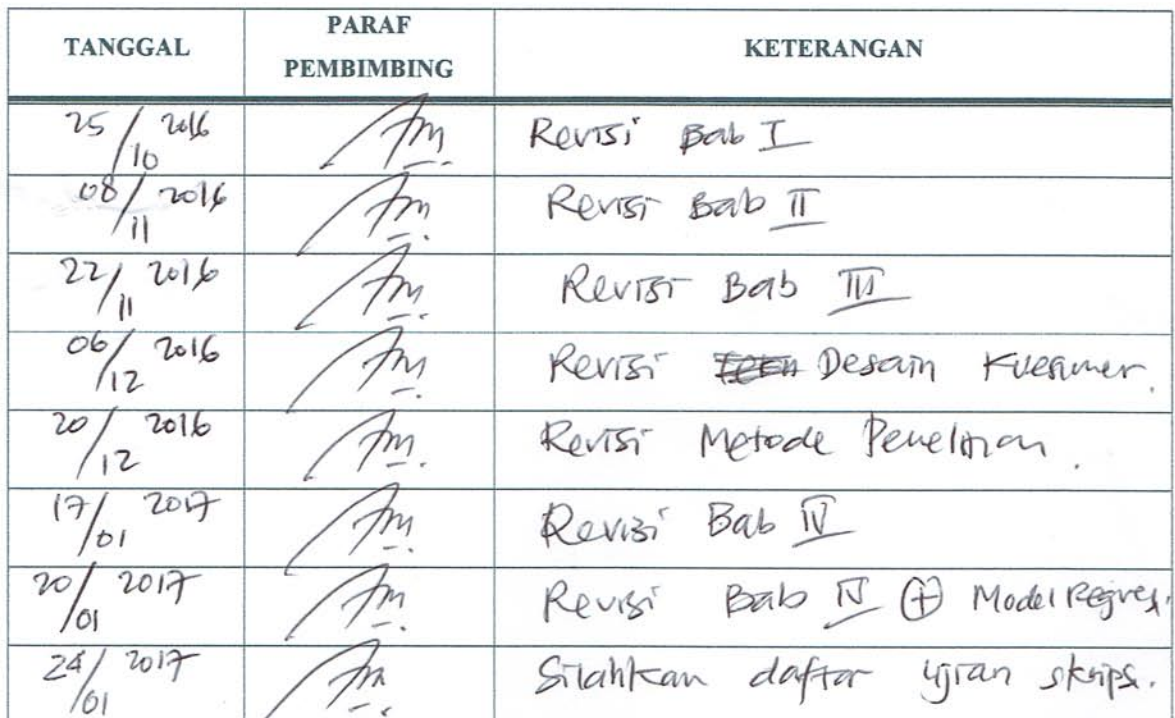 TANGGAL PARAF PEMBIMBING KETERANGAN
25/10 2016 Revisi Bab I
08/11 2016 Revisi Bab II
22/11 2016 Revisi Bab III
06/12 2016 Revisi Desain Kuesioner.
20/12 2016 Revisi Metode Penelitian.
17/01 2017 Revisi Bab IV
20/01 2017 Revisi Bab IV + Model Regresi.
24/01 2017 Silahkan daftar ujian skripsi.